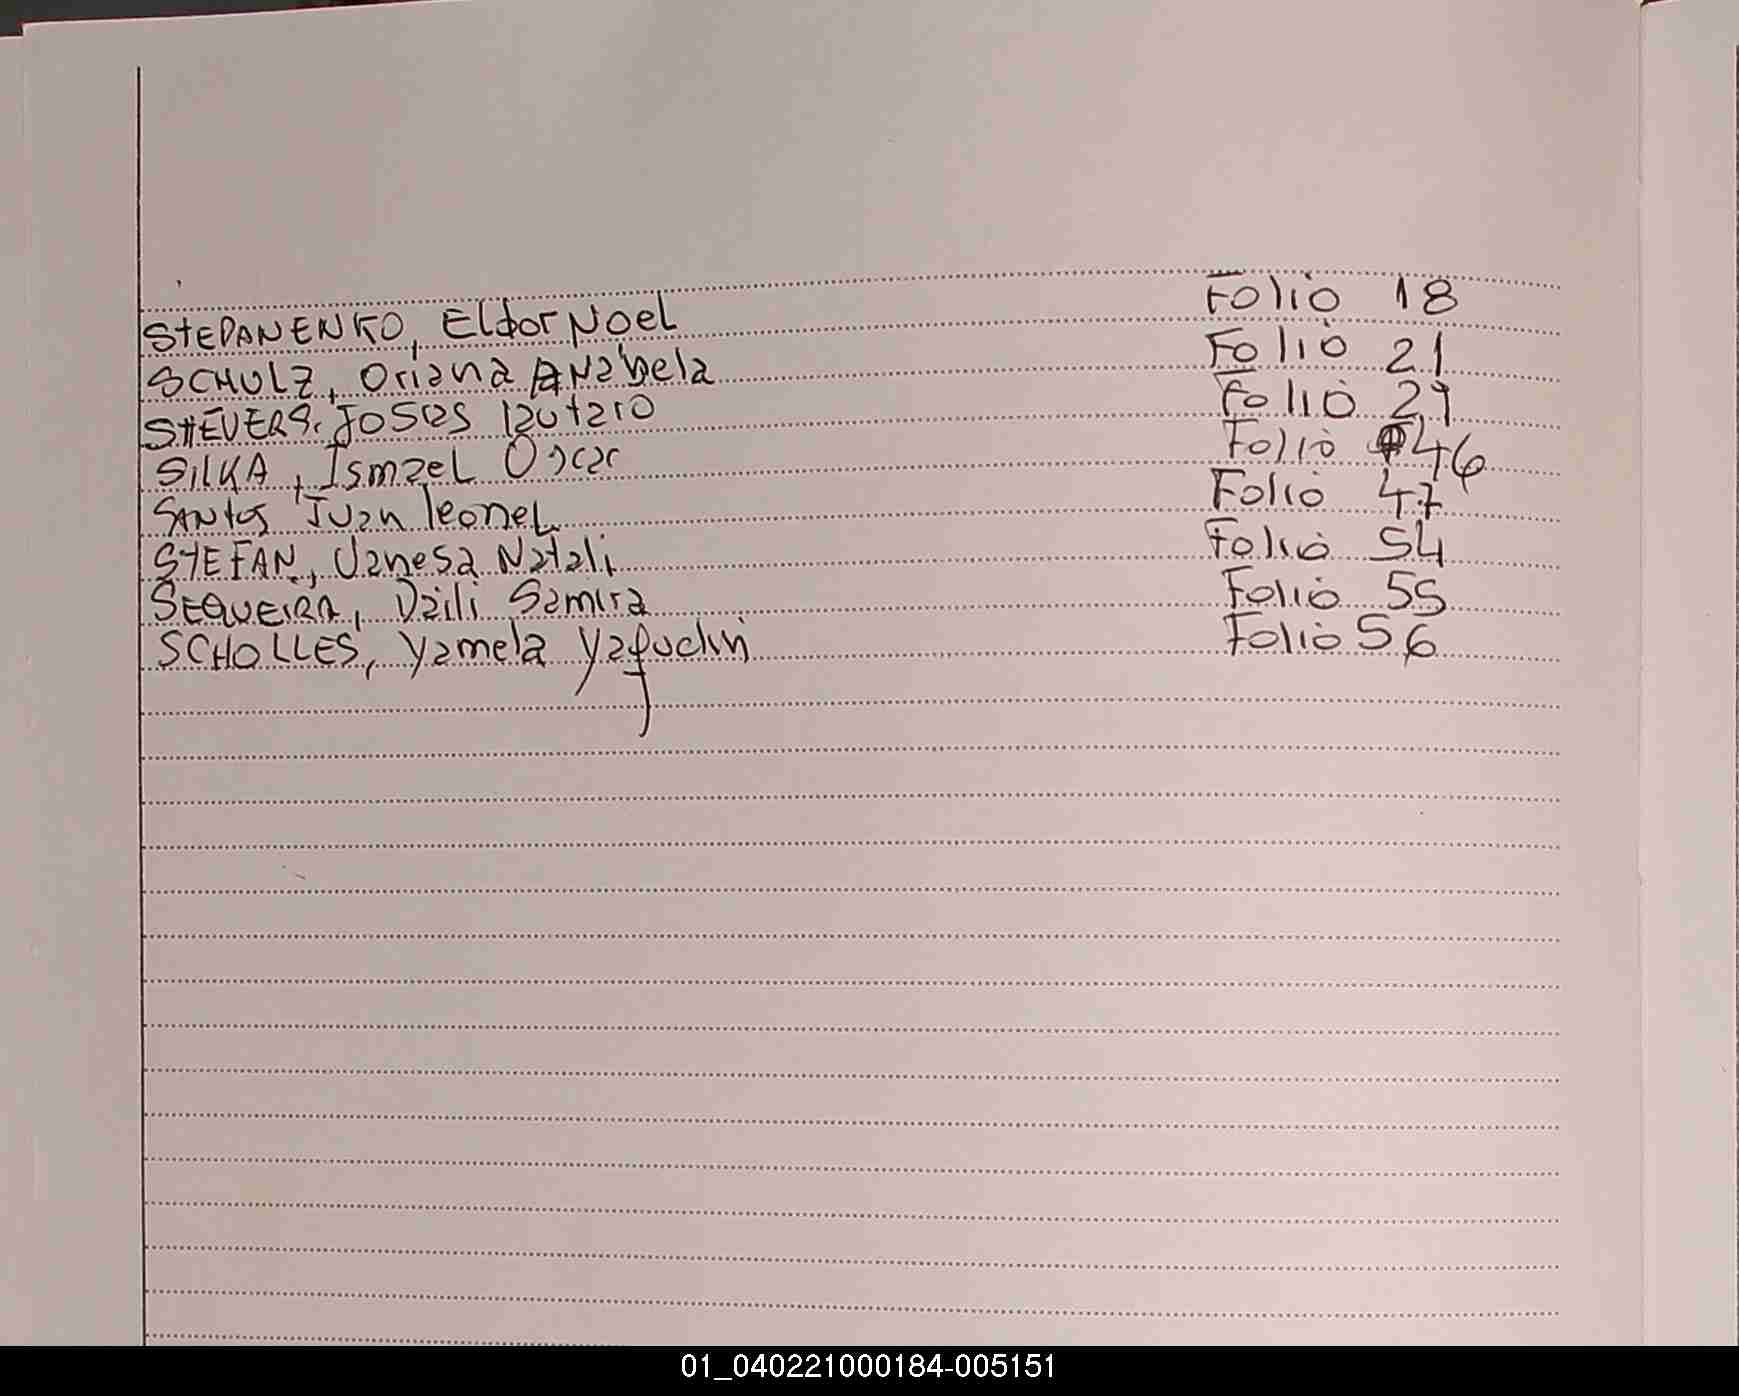 STEPANENKO, Eldor Noel Folio 18
SCHULZ, Oriana Anabela Folio 21
STIEVERS, Joses Lautaro Folio 29
SILKA, Ismael Oscar Folio 46
SANtos Juan leonel Folio 47
STEFAN, Vanesa Natali Folio 54
SEQUEIRA, Daili Samira Folio 55
SCHOLLES, Yamela Folio 56
01_040221000184-005151